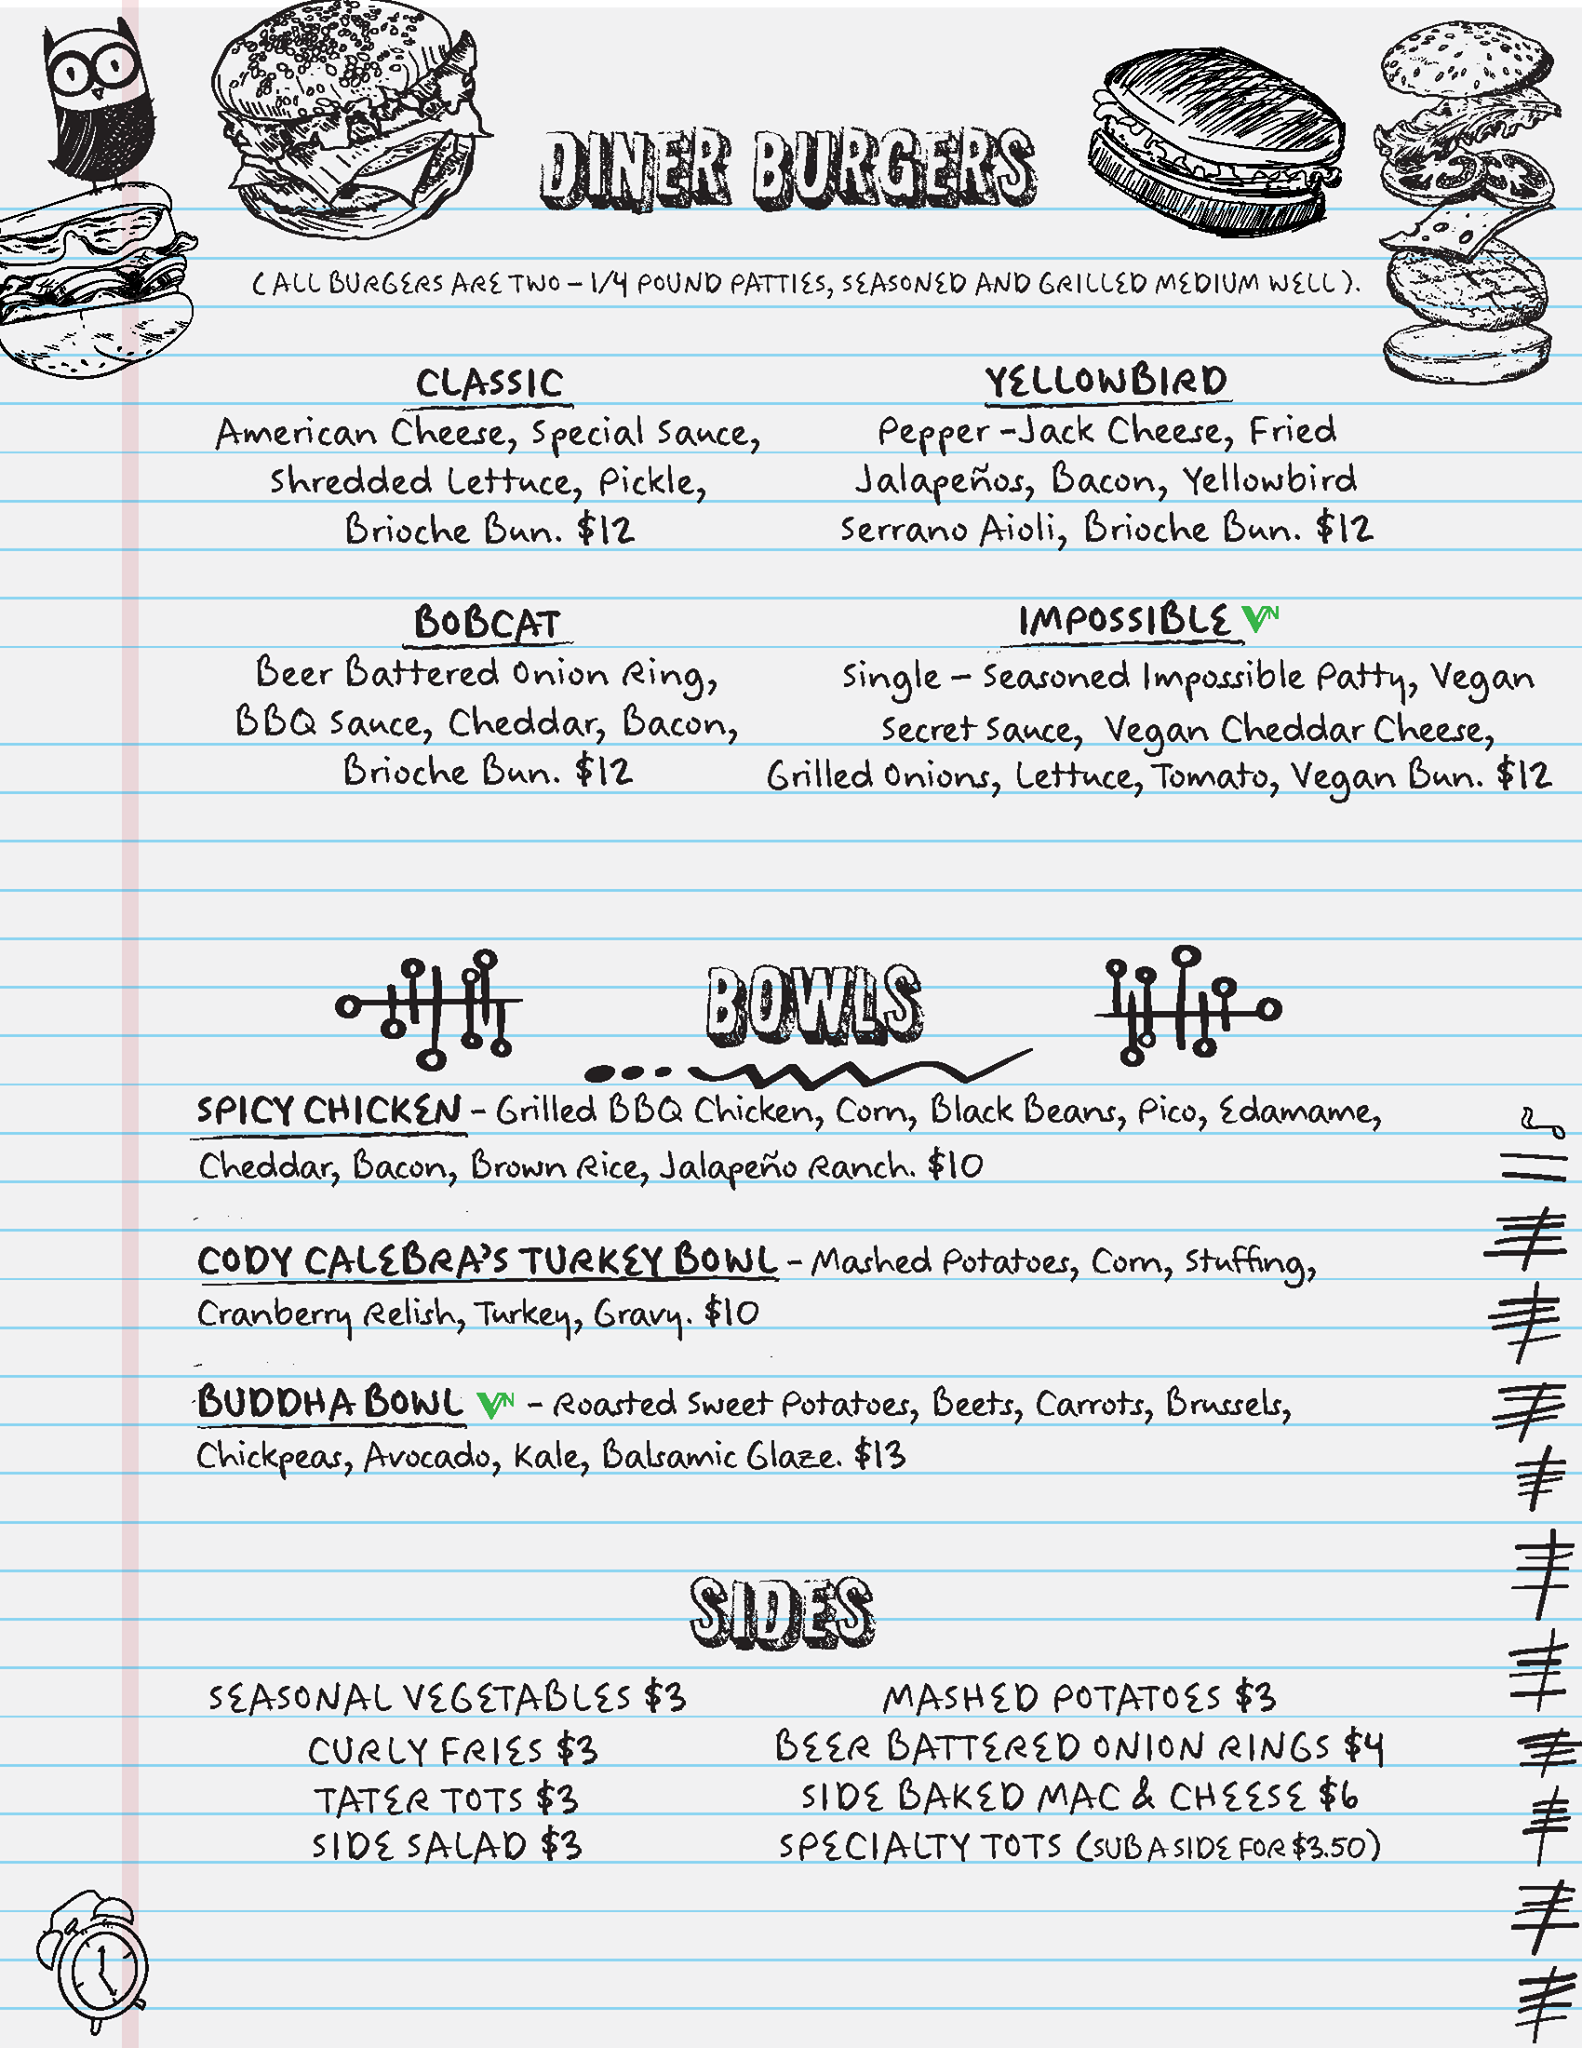 DINER BURGERS
(ALL BURGERS ARE TWO - 1/4 POUND PATTIES, SEASONED AND GRILLED MEDIUM WELL).
CLASSIC
American Cheese, Special Sauce,
Shredded Lettuce, Pickle,
Brioche Bun. $12
YELLOWBIRD
Pepper-Jack Cheese, Fried
Jalapeños, Bacon, Yellowbird
Serrano Aioli, Brioche Bun. $12
BOBCAT
Beer Battered Onion Ring,
BBQ Sauce, Cheddar, Bacon,
Brioche Bun. $12
IMPOSSIBLE VN
Single - Seasoned Impossible Patty, Vegan
Secret Sauce, Vegan Cheddar Cheese,
Grilled Onions, Lettuce, Tomato, Vegan Bun. $12
BOWLS
SPICY CHICKEN - Grilled BBQ Chicken, Corn, Black Beans, Pico, Edamame,
Cheddar, Bacon, Brown Rice, Jalapeño Ranch. $10
CODY CALEBRA'S TURKEY BOWL - Mashed Potatoes, Corn, Stuffing,
Cranberry Relish, Turkey, Gravy. $10
BUDDHA BOWL VN - Roasted Sweet Potatoes, Beets, Carrots, Brussels,
Chickpeas, Avocado, Kale, Balsamic Glaze. $13
SIDES
SEASONAL VEGETABLES $3
CURLY FRIES $3
TATER TOTS $3
SIDE SALAD $3
MASHED POTATOES $3
BEER BATTERED ONION RINGS $4
SIDE BAKED MAC & CHEESE $6
SPECIALTY TOTS (SUB A SIDE FOR $3.50)